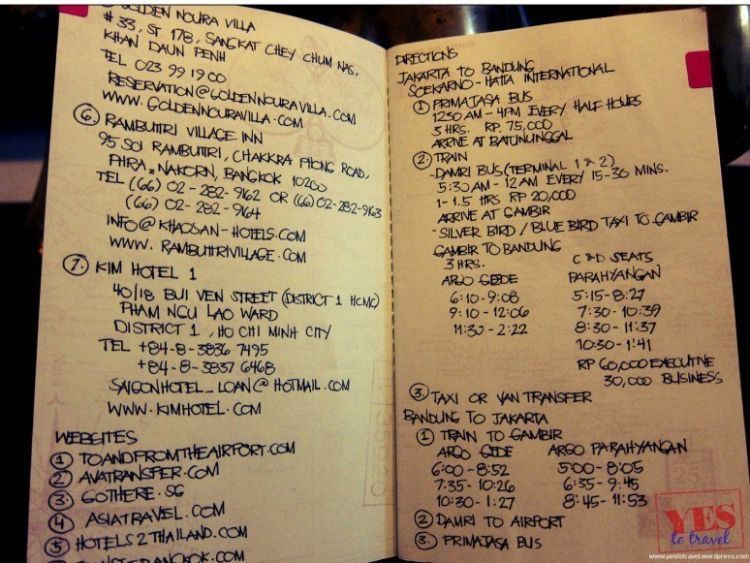 GOLDEN NOURA VILLA
# 33, ST 178, SANGKAT CHEY CHUM NAS,
KHAN DAUN PENH
TEL 023 99 19 00
RESERVATION@GOLDENNOURAVILLA.COM
WWW.GOLDENNOURAVILLA.COM
6. RAMBUTTRI VILLAGE INN
95 SOI RAMBUTTRI, CHAKKRA PHONG ROAD,
PHRA NAKORN, BANGKOK 10200
TEL (66) 02-282-9162 OR (66) 02-282-9163
(66) 02-282-9164
INFO@KHAOSAN-HOTELS.COM
WWW.RAMBUTTRIVILLAGE.COM
7. KIM HOTEL 1
40/18 BUI VEN STREET (DISTRICT 1 HCMC)
PHAM NGU LAO WARD
DISTRICT 1, HO CHI MINH CITY
TEL +84-8-3836 7495
+84-8-3837 6468
SAIGONHOTEL_LOAN@HOTMAIL.COM
WWW.KIMHOTEL.COM
WEBSITES
1 TOANDFROMTHEAIRPORT.COM
2 AVATRANSFER.COM
3 GOTHERE.SG
4 ASIATRAVEL.COM
5 HOTELS2THAILAND.COM
DIRECTIONS
JAKARTA TO BANDUNG
SOEKARNO-HATTA INTERNATIONAL
1 PRIMAJASA BUS
1230 AM - 4PM EVERY HALF HOURS
3 HRS. RP. 75,000
ARRIVE AT BATUNUNGGAL
2. TRAIN
-DAMRI BUS (TERMINAL 1 & 2)
5:30 AM - 12 AM EVERY 15-30 MINS.
1-1.5 HRS RP 20,000
ARRIVE AT GAMBIR
-SILVER BIRD / BLUE BIRD TAXI TO GAMBIR
GAMBIR TO BANDUNG
3 HRS. C & D SEATS
ARGO GEDE PARAHYANGAN
6:10-9:08 5:15-8:27
9:10-12:06 7:30-10:39
11:30-2:22 8:30-11:37
10:30-1:41
RP 60,000 EXECUTIVE
30,000 BUSINESS
3 TAXI OR VAN TRANSFER
BANDUNG TO JAKARTA
1 TRAIN TO GAMBIR
ARGO GEDE ARGO PARAHYANGAN
6:00-8:52 5:00-8:05
7:35-10:26 6:35-9:45
10:30-1:27 8:45-11:53
2 DAMRI TO AIRPORT
3. PRIMAJASA BUS
YES
to travel
www.yestotravel.wordpress.com